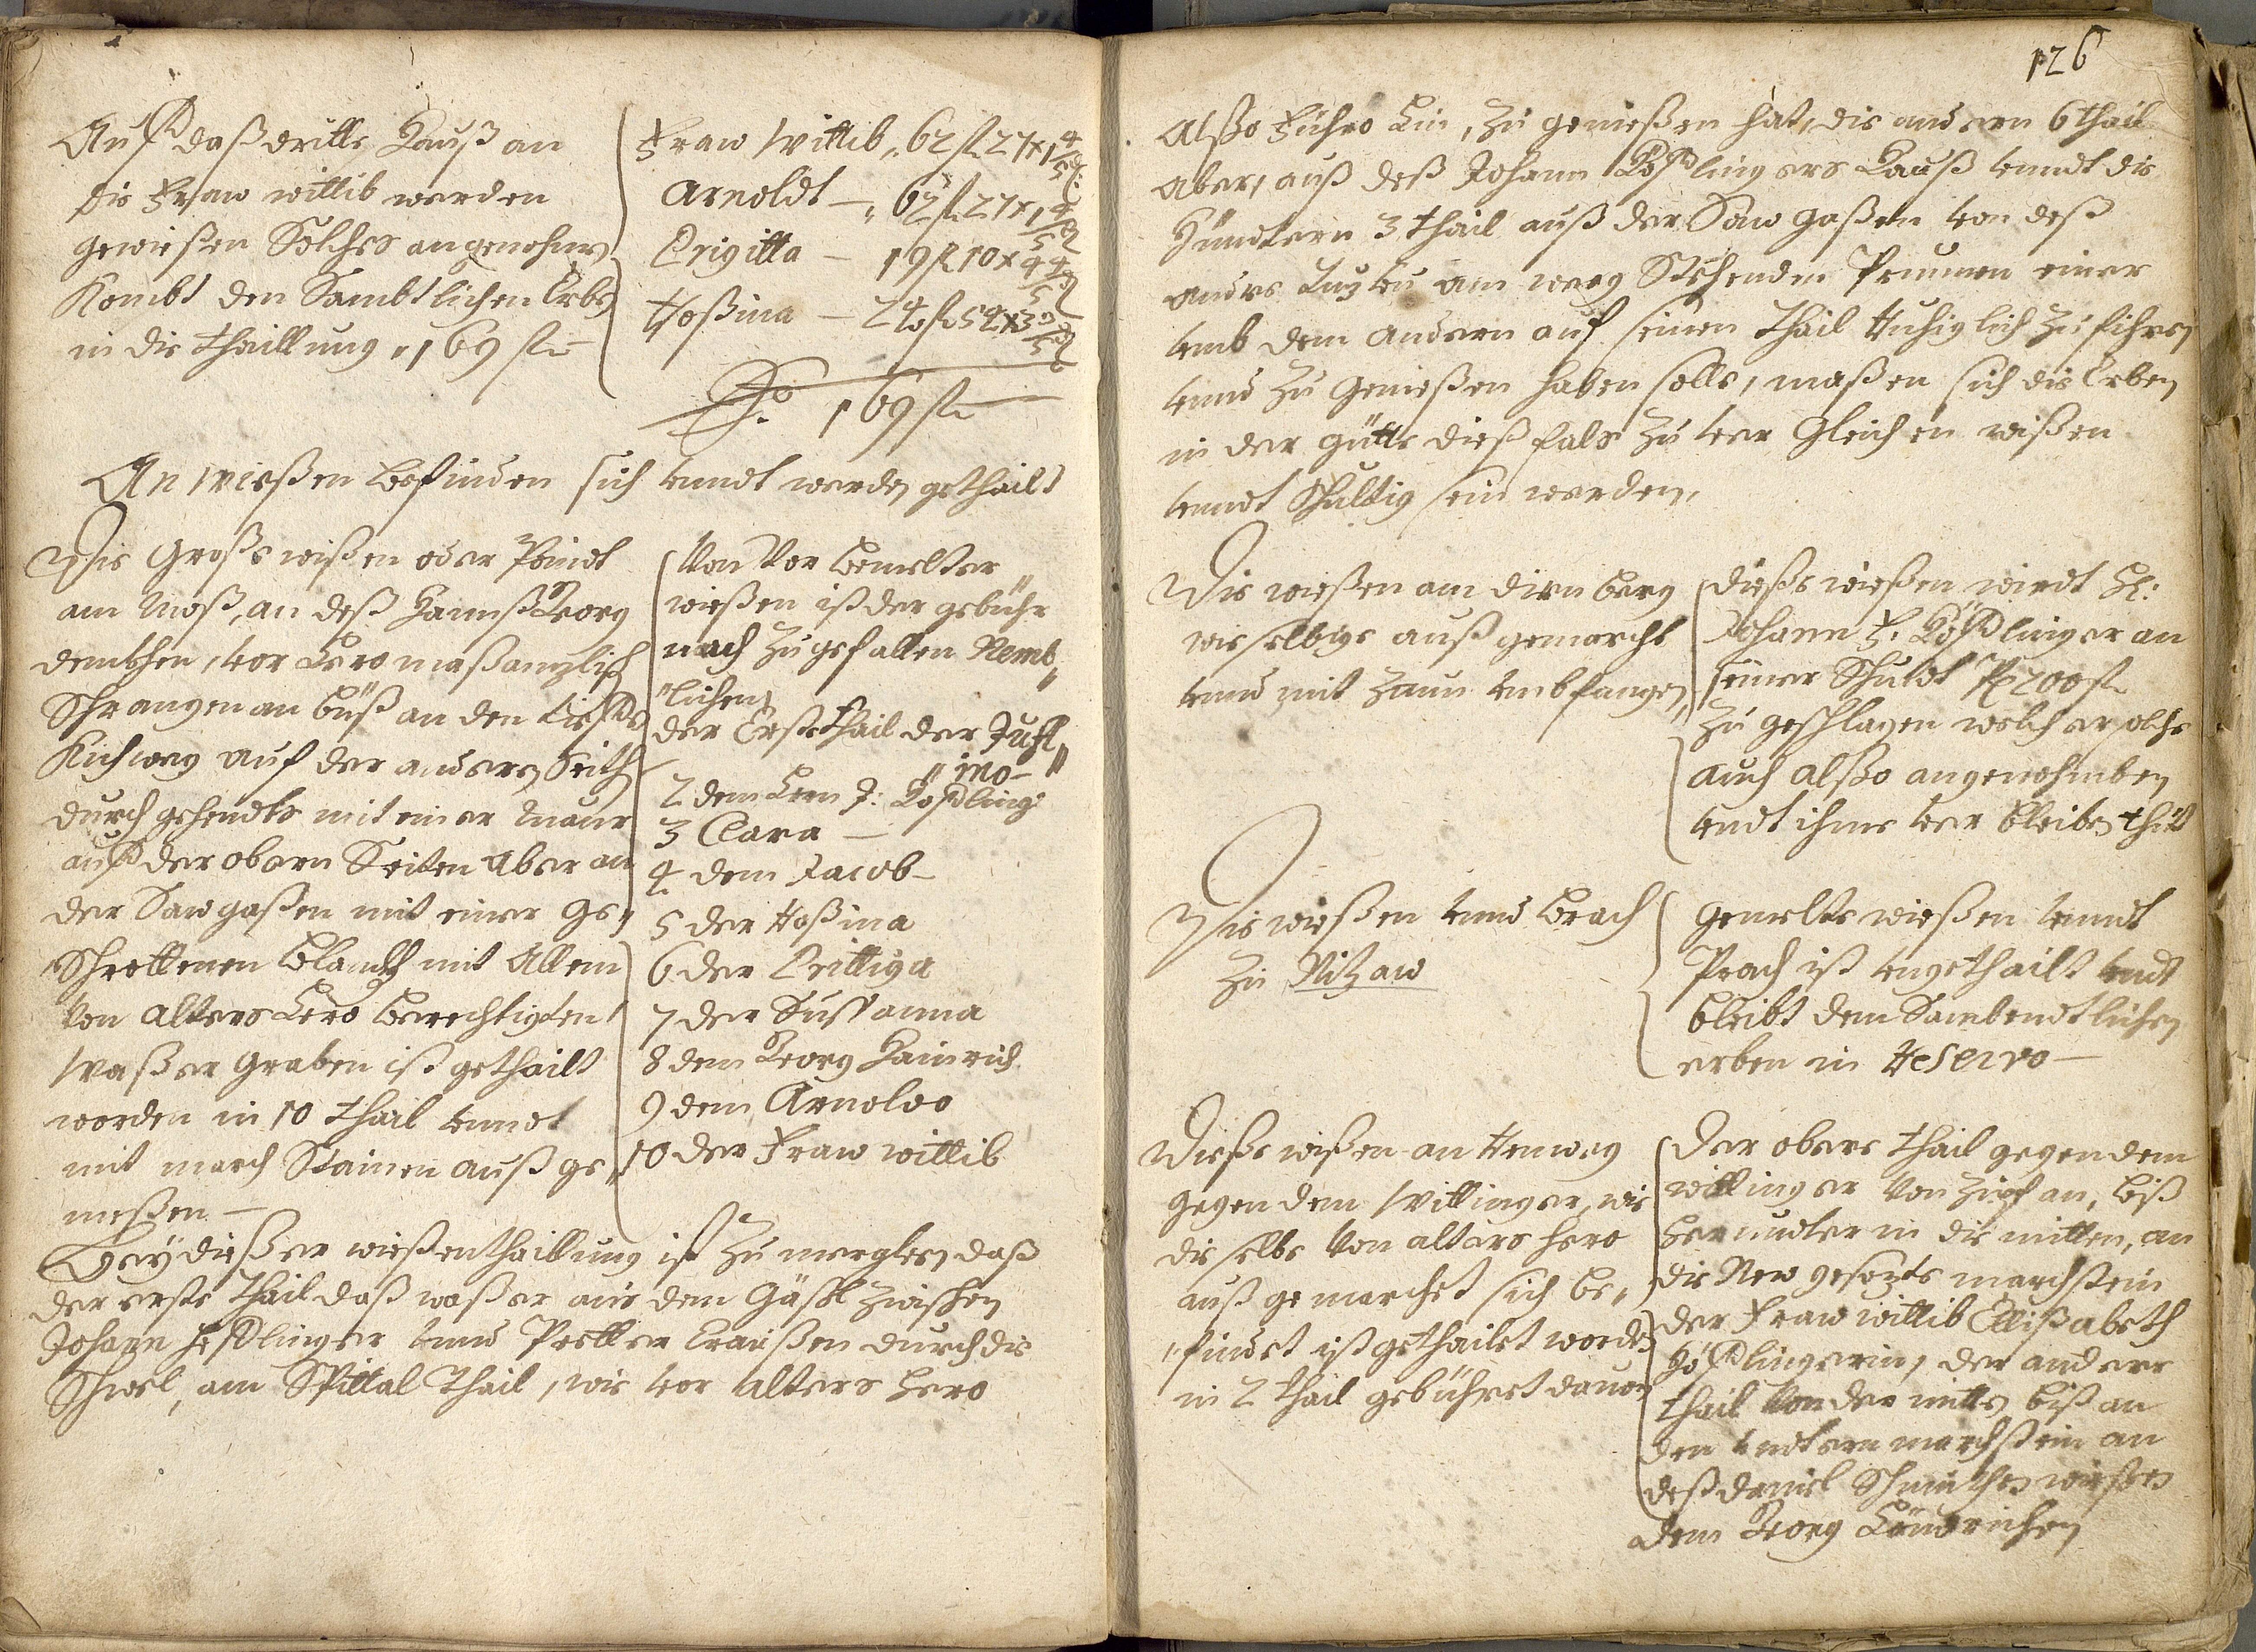 Auf daß dritte Hauß an
die Fraw wittib werden
gewießen Solches angenohme
Kombt den Sambtlichen Erbe
in die thaillung „ 169 fl —
Fraw Wittib „ 62 fl 27 x 1 4/5 ₰
Arnoldt — „ 62 fl 27 x 1 4/5 ₰
Brigitta — 19 fl 10 x 4 4/5 ₰
Rosina — 24 fl 54 x 3 3/5 ₰
Sa. 169 fl —
An wießen befinden sich vnndt werden gethailt
Die Große wißen oder Peindt
am Moß, an deß Hannß Georg
vor hero
Schrangen an biß an den
Kichweg auf der anderen Seith
durch gehendts mit einer maur
auf der obern Seiten aber an
der Sawgaßen mit einer ge„
Schrottenen Blanckh mit Allem
Von alters hero berechtigten
Waßer Graben ist gethailt
worden in 10 thail vnndt
mit march Stainen auß ge„
meßen —
Von Vor bemelter
wießen ist der gebühr
nach zu gefallen Nemb„
„lichen
der Erste thail der Just„
„ina —
2 dem Hern J: Hößling:
3 Clara —
4 dem Jacob —
5 der Rosina
6 der Brittiga
7 der Sussanna
8 dem Georg Hainrich
9 dem Arnoldo
10 der Fraw wittib
Bey dießer wießenthaillung ist zu merghen, daß
der erste thail daß waßer auß dem Gäßl zwischen
Johann Heßlinger vnnd durch die
am Spittal thail, wie vor alters hero
126
Alßo Führo hin, zu genießen hat, die andern 6 thail
aber, auß deß Johann Hößlingers Hauß vnndt die
hindtern 3 thail auß der Saw gaßen von deß
am weeg Stehenden Prunnen einer
vmb dem Andern auf seinen thail Ruhiglich zu fihren
vnnd zu Genießen haben solle, maßen sich die Erben
in der gütte dießfals zu ver Gleichen wißen
vnndt Schultig sein werden,
Die wießen am dirnberg
wie selbige auß gemarcht
vnnd mit Zaun vmbfangen
Dieße wießen wirdt H:
Johann F. Hößlinger an
seiner Schuldt P 200 fl
zu geschlagen welch er solche
auch alßo angenohmben
vndt ihme ver bleiben thuet
Die wießen vnnd brach
zu Nitzaw
Gemelte wießen vnndt
Prach ist vngethailt vndt
bleibt den Sambendtlichen
erben in Reservo —
Dieße wißen an Renweg
gegen dem Willinger, wie
die selbe Von alters hero
auß gemarchet sich be„
„findet ist gethailet worden
in 2 thail gebühret dauon
der obere thail gegen dem
willinger Von Zipf an, biß
herundter in die mitten, an
die New gesezte marchstein
der Fraw wittib Ellisabeth
Hößlingerin, der andere
thail Von der mitte biß an
den vndtern marchstein an
deß daniel wießen
dem Georg Heinrichen